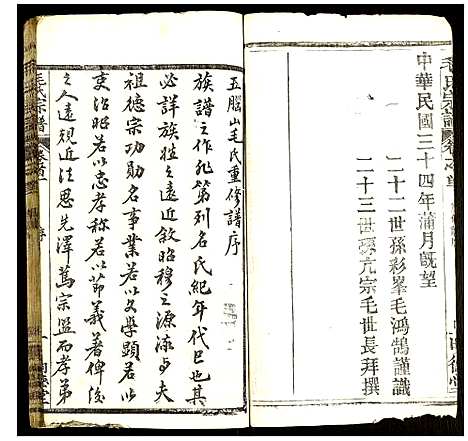 毛氏宗譜
卷之首
中華民國三十四年蒲月既望
二十二世孫彩峯毛鴻鵠謹識
二十三世孫亢宗毛世長拜撰
五腦山毛氏重修譜序
族譜之作非第列名氏紀年代已也其
必詳族姓之遠近敘昭穆之源流與夫
祖德宗功勛名事業若以文學顯若以
吏治昭若以忠孝稱若以節義著俾後
之人遠視近法思先澤篤宗盟而孝弟
毛氏宗譜
卷之首
序
一